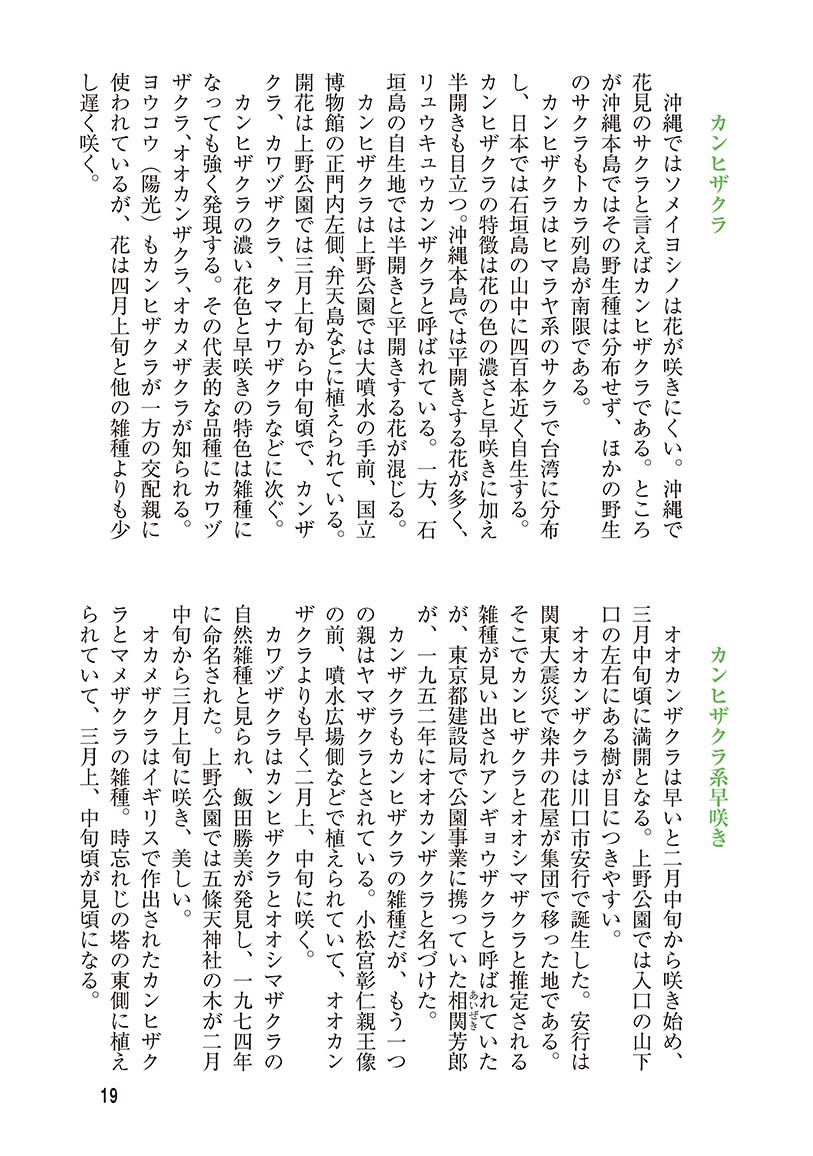 カンヒザクラ
沖縄ではソメイヨシノは花が咲きにくい。沖縄で
花見のサクラと言えばカンヒザクラである。ところ
が沖縄本島ではその野生種は分布せず、ほかの野生
のサクラもトカラ列島が南限である。
カンヒザクラはヒマラヤ系のサクラで台湾に分布
し、日本では石垣島の山中に四百本近く自生する。
カンヒザクラの特徴は花の色の濃さと早咲きに加え
半開きも目立つ。沖縄本島では平開きする花が多く、
リュウキュウカンザクラと呼ばれている。一方、石
垣島の自生地では半開きと平開きする花が混じる。
カンヒザクラは上野公園では大噴水の手前、国立
博物館の正門内左側、弁天島などに植えられている。
開花は上野公園では三月上旬から中旬頃で、カンザ
クラ、カワヅザクラ、タマナワザクラなどに次ぐ。
カンヒザクラの濃い花色と早咲きの特色は雑種に
なっても強く発現する。その代表的な品種にカワヅ
ザクラ、オオカンザクラ、オカメザクラが知られる。
ヨウコウ（陽光）もカンヒザクラが一方の交配親に
使われているが、花は四月上旬と他の雑種よりも少
し遅く咲く。
カンヒザクラ系早咲き
オオカンザクラは早いと二月中旬から咲き始め、
三月中旬頃に満開となる。上野公園では入口の山下
口の左右にある樹が目につきやすい。
オオカンザクラは川口市安行で誕生した。安行は
関東大震災で染井の花屋が集団で移った地である。
そこでカンヒザクラとオオシマザクラと推定される
雑種が見い出されアンギョウザクラと呼ばれていた
が、東京都建設局で公園事業に携っていた相関芳郎
あいぜき
が、一九五二年にオオカンザクラと名づけた。
カンザクラもカンヒザクラの雑種だが、もう一つ
の親はヤマザクラとされている。小松宮彰仁親王像
の前、噴水広場側などで植えられていて、オオカン
ザクラよりも早く二月上、中旬に咲く。
カワヅザクラはカンヒザクラとオオシマザクラの
自然雑種と見られ、飯田勝美が発見し、一九七四年
に命名された。上野公園では五條天神社の木が二月
中旬から三月上旬に咲き、美しい。
オカメザクラはイギリスで作出されたカンヒザク
ラとマメザクラの雑種。時忘れじの塔の東側に植え
られていて、三月上、中旬頃が見頃になる。
19